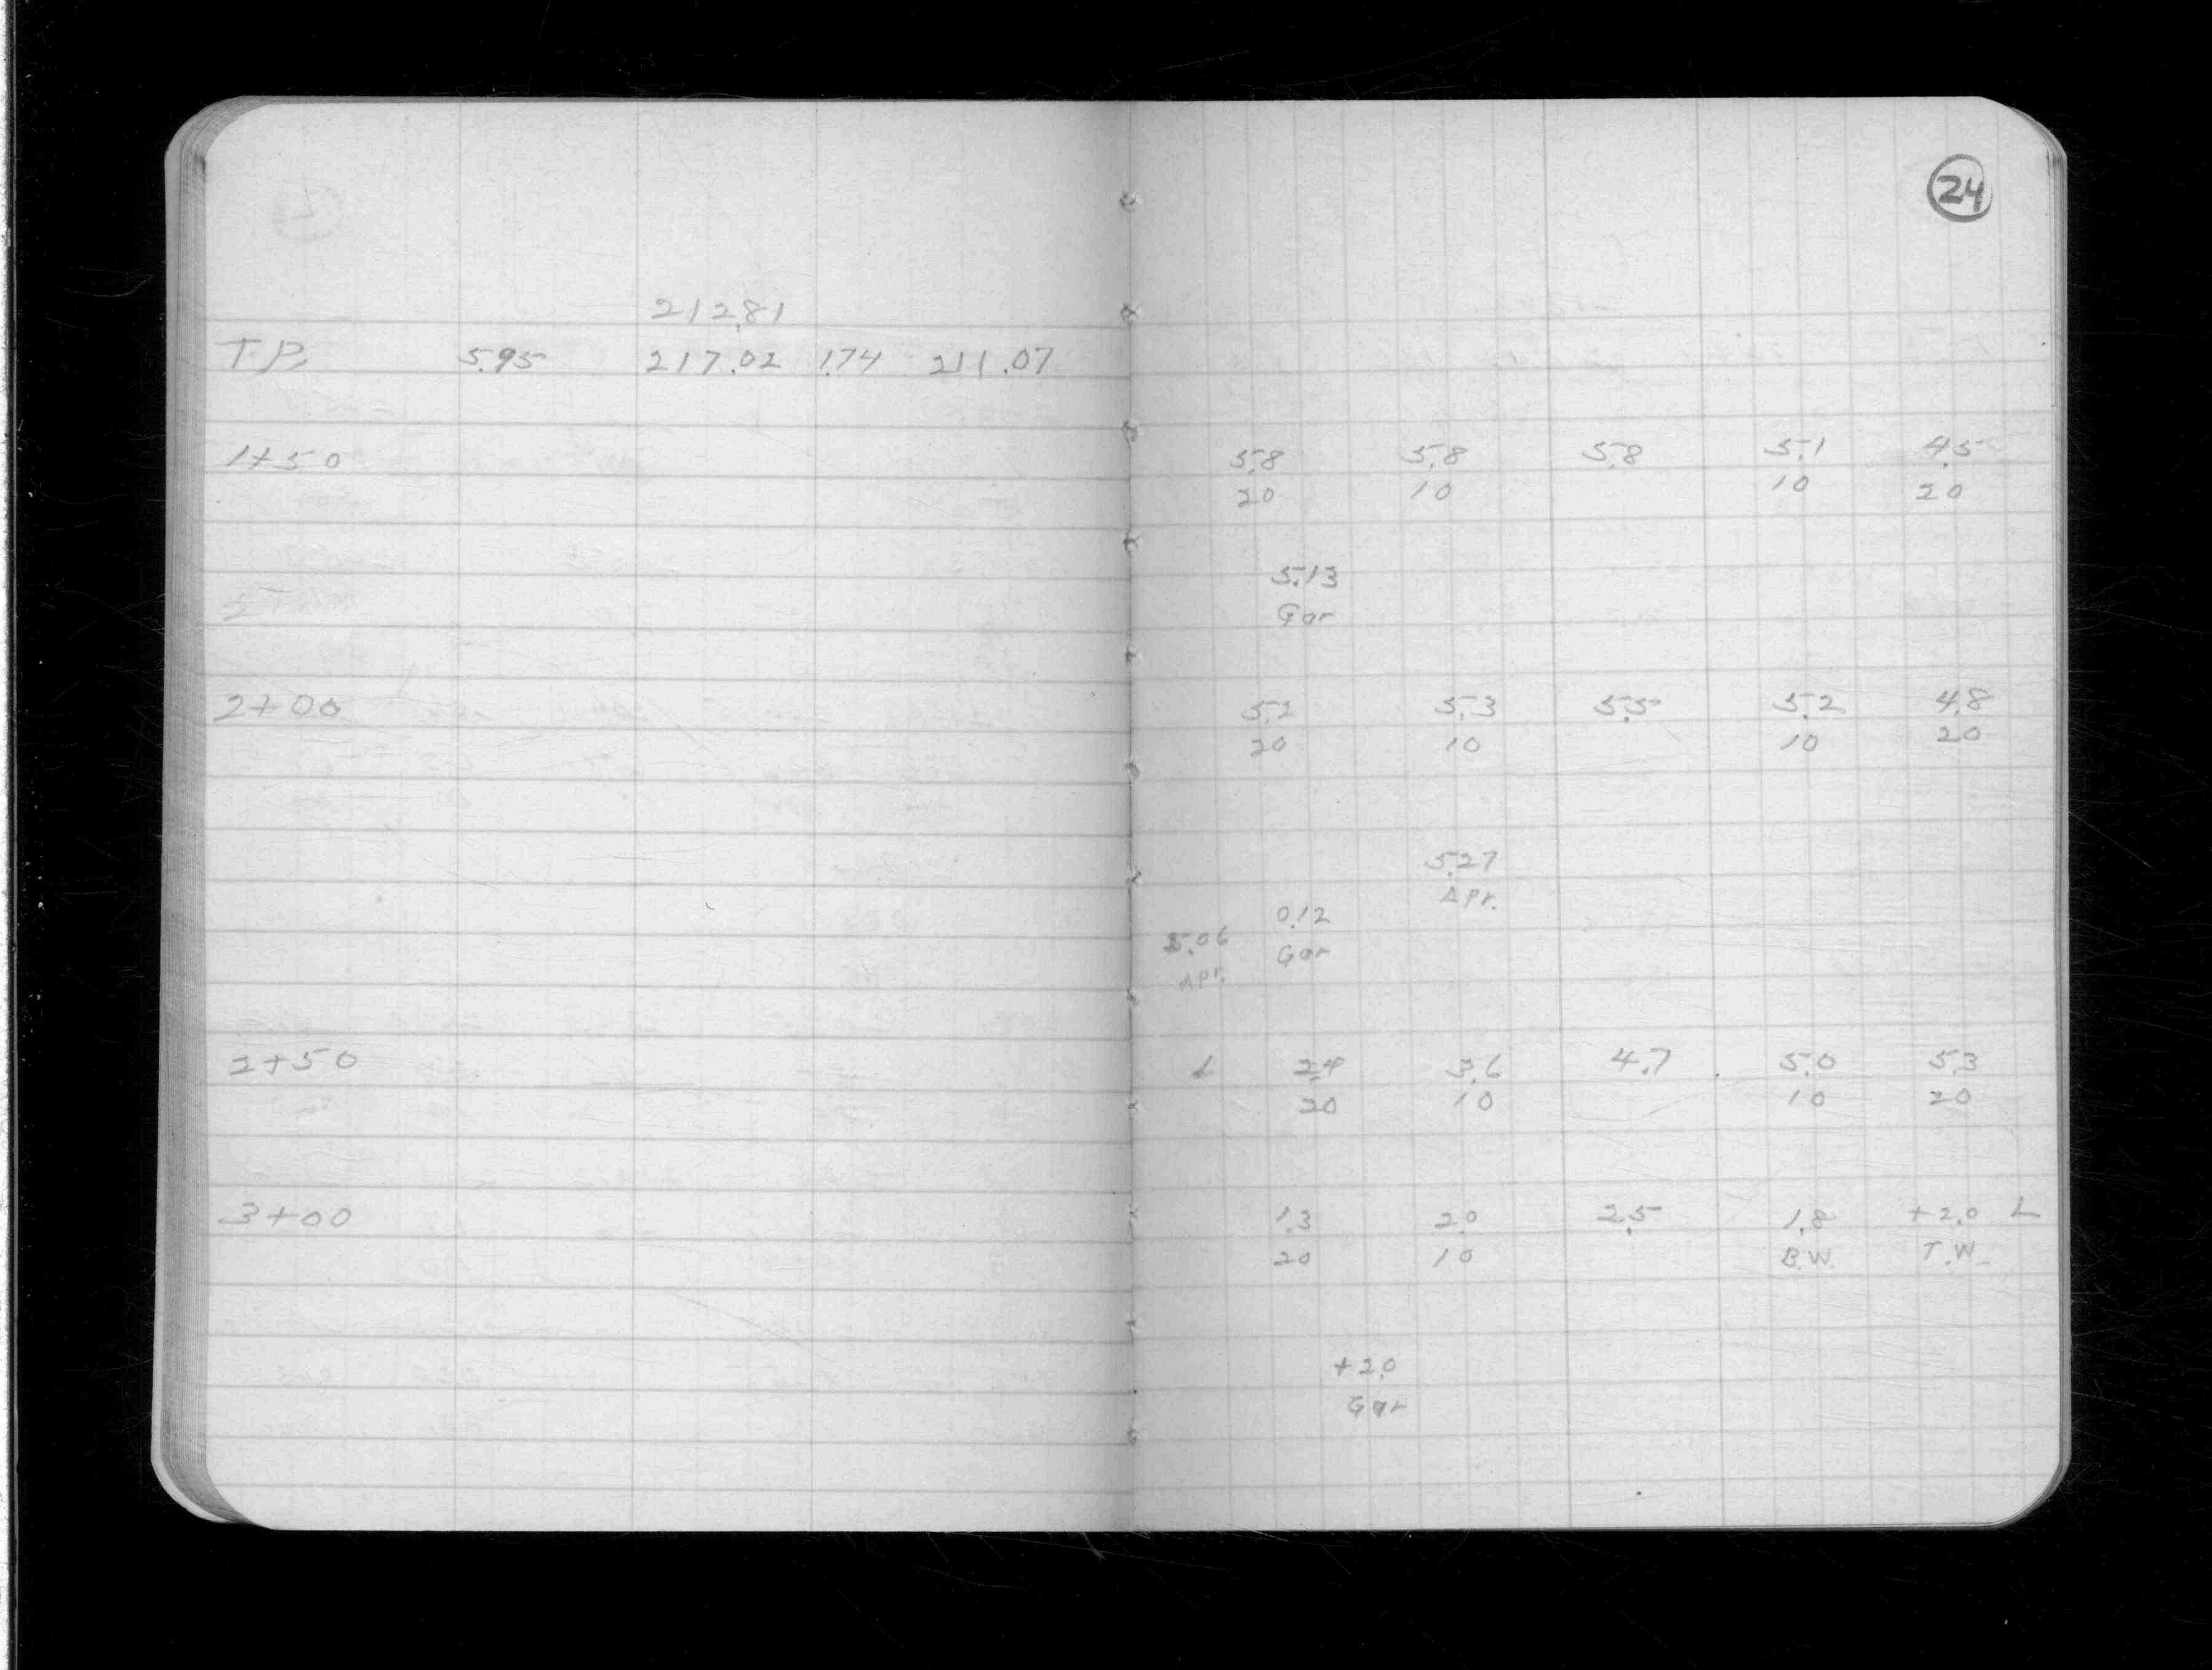 24
212.81
T.P. 5.95 217.02 1.74 211.07
1+50 5.8 5.8 5.8 5.1 4.5
20 10 10 20
5.13
Gar
2+00 5.2 5.3 5.5 5.2 4.8
20 10 10 20
5.27
Apr.
0.12
Gar
5.06
Apr.
2+50 2.4 3.6 4.7 5.0 5.3
20 10 10 20
3+00 1.3 2.0 2.5 1.8 +2.0 L
20 10 B.W. T.W.
+2.0
Gar